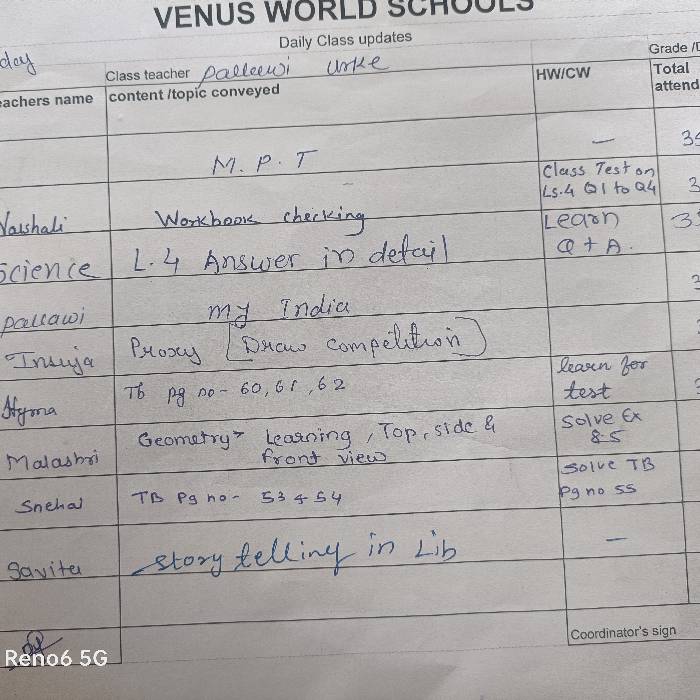 VENUS WORLD SCHOOLS
Daily Class updates
day
Class teacher pallawi
Grade /D
eachers name content /topic conveyed HW/CW Total attend
M. P. T —
Vaishali Workbook checking Class Test on Ls.4 Q1 to Q4
Science L.4 Answer in detail Learn Q + A.
pallawi my India
Proxy [Draw competition]
Hyma Tb pg no - 60, 61, 62 learn for test
Malashri Geometry> Learning, Top, side & front view Solve Ex 8.5
Snehal TB Pg no - 53 & 54 Solve TB Pg no 55
Savita story telling in Lib —
Coordinator's sign
Reno6 5G